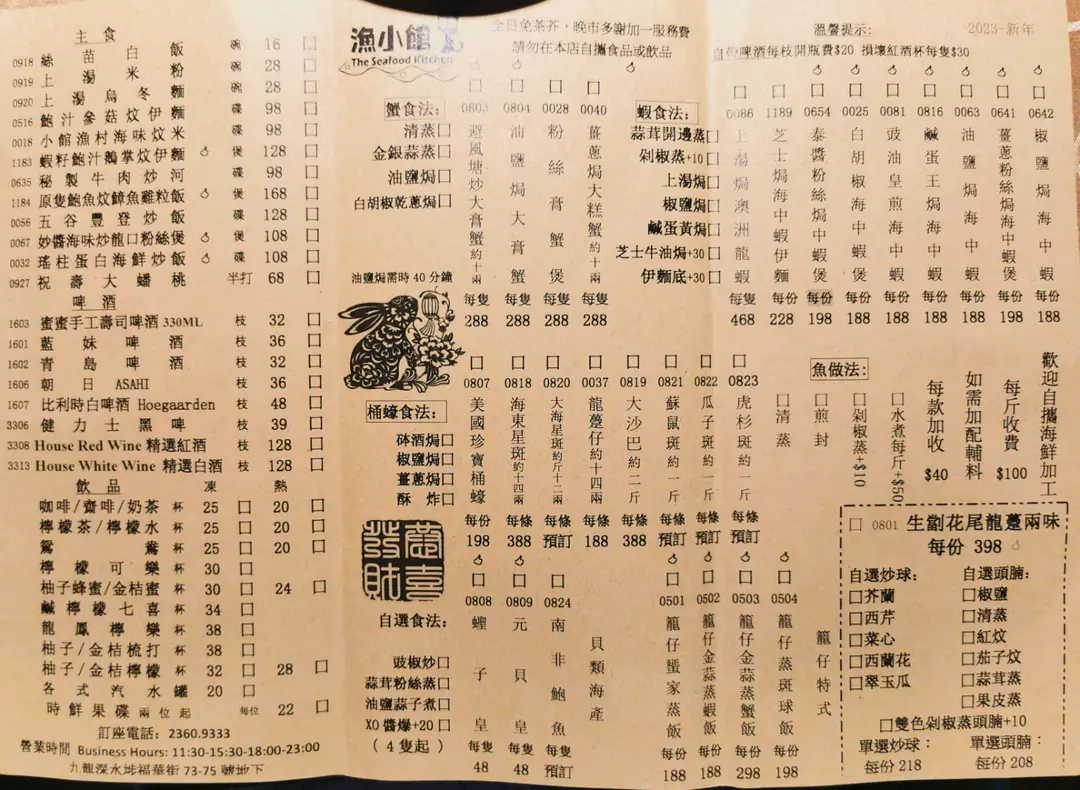 主食
0918 絲苗白飯 碗 16 口
0919 上湯米粉 碗 28 口
0920 上湯烏冬麵 碗 28 口
0516 鮑汁參菇炆伊麵 碟 98 口
0018 小館漁村海味炆米 碟 98 口
1183 蝦籽鮑汁鵝掌炆伊麵 煲 128 口
0635 秘製牛肉炒河 碟 98 口
1184 原隻鮑魚炆鱆魚雞粒飯 煲 168 口
0056 五谷豐登炒飯 碟 128 口
0067 妙醬海味炒龍口粉絲煲 煲 108 口
0032 瑤柱蛋白海鮮炒飯 碟 108 口
0927 祝壽大蟠桃 半打 68 口
啤酒
1603 蜜蜜手工壽司啤酒 330ML 枝 32 口
1601 藍妹啤酒 枝 36 口
1602 青島啤酒 枝 32 口
1606 朝日 ASAHI 枝 36 口
1607 比利時白啤酒 Hoegaarden 枝 48 口
3306 健力士黑啤 枝 39 口
3308 House Red Wine 精選紅酒 枝 128 口
3313 House White Wine 精選白酒 枝 128 口
飲品 凍 熱
咖啡/齋啡/奶茶 杯 25 口 20 口
檸檬茶/檸檬水 杯 25 口 20 口
鴛鴦 杯 25 口 20 口
檸檬可樂 杯 30 口
柚子蜂蜜/金桔蜜 杯 30 口 24 口
鹹檸檬七喜 杯 34 口
龍鳳檸樂 杯 38 口
柚子/金桔梳打 杯 38 口
柚子/金桔檸檬 杯 32 口 28 口
各式汽水罐 20 口
時鮮果碟 兩位起 每位 22 口
訂座電話: 2360.9333
營業時間 Business Hours: 11:30-15:30-18:00-23:00
九龍深水埗福華街 73-75 號地下
漁小館
The Seafood Kitchen
全日免茶芥，晚市多謝加一服務費
請勿在本店自攜食品或飲品
溫馨提示: 2023~新年
自備啤酒每枝開瓶費$20 損壞紅酒杯每隻$30
蟹食法:
清蒸口
金銀蒜蒸口
油鹽焗口
白胡椒乾蔥焗口
油鹽焗需時 40 分鐘
口 0803 避風塘炒大膏蟹約十兩 每隻 288
口 0804 油鹽焗大膏蟹 每隻 288
口 0028 粉絲膏蟹煲 每隻 288
口 0040 薑蔥焗大糕蟹約十兩 每隻 288
蝦食法:
蒜茸開邊蒸口
剁椒蒸+10口
上湯焗口
椒鹽焗口
鹹蛋黃焗口
芝士牛油焗+30口
伊麵底+30口
口 0086 上湯焗澳洲龍蝦 每隻 468
口 1189 芝士海中蝦伊麵 每份 228
口 0654 泰醬粉絲焗中蝦煲 每份 198
口 0025 白胡椒海中蝦煲 每份 188
口 0081 豉油皇煎中蝦 每份 188
口 0816 鹹蛋王焗海中蝦 每份 188
口 0063 油鹽焗海中蝦 每份 188
口 0641 薑蔥粉絲焗海中蝦煲 每份 198
口 0642 椒鹽海中蝦 每份 188
桶蠔食法:
砵酒焗口
椒鹽焗口
薑蔥焗口
酥炸口
口 0807 美國珍寶桶蠔 每份 198
口 0818 海東星斑約十四兩 每條 388
口 0820 大海星斑約斤十二兩 每條 預訂
口 0037 龍躉仔約十四兩 每條 188
口 0819 大沙巴約二斤 每條 388
口 0821 蘇鼠斑約一斤 每條 預訂
口 0822 瓜子斑約一斤 每條 預訂
口 0823 虎杉斑約一斤 每條 預訂
魚做法:
口清蒸
口煎封
口剁椒蒸+$10
口水煮每斤+$50
每款加收 $40
如需加配輔料
每斤收費 $100
歡迎自攜海鮮加工
恭喜發財
自選食法:
豉椒炒口
蒜茸粉絲蒸口
油鹽蒜子煮口
XO 醬爆+20口
( 4 隻起 )
口 0808 蟶子皇 每隻 48
口 0809 元貝皇 每隻 48
口 0824 南非鮑魚 每隻 預訂
貝類海產
口 0501 籠仔蠻家蒸飯 每份 188
口 0502 籠仔金蒜蒸蝦飯 每份 188
口 0503 籠仔金蒜蒸蟹飯 每份 298
口 0504 籠仔蒸斑球飯 每份 198
籠仔特式
口 0801 生劏花尾龍躉兩味
每份 398
自選炒球:
口芥蘭
口西芹
口菜心
口西蘭花
口翠玉瓜
自選頭腩:
口椒鹽
口清蒸
口紅炆
口茄子炆
口蒜茸蒸
口果皮蒸
口雙色剁椒蒸頭腩+10
單選炒球：
每份 218
單選頭腩：
每份 208